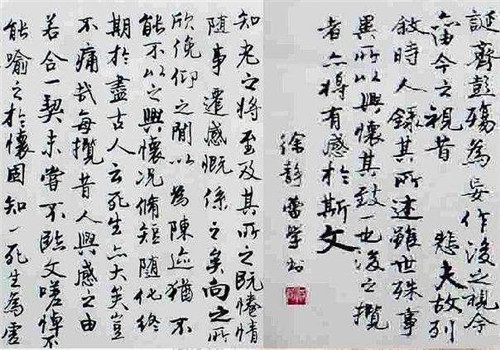 知老之將至及其所之既惓情
隨事遷感慨係之矣向之所
欣俛仰之間以為陳迹猶不
能不以之興懷況脩短隨化終
期於盡古人云死生亦大矣豈
不痛哉每攬昔人興感之由
若合一契未嘗不臨文嗟悼不
能喻之於懷固知一死生為虛
誕齊彭殤為妄作後之視今
亦由今之視昔 悲夫故列
敘時人錄其所述雖世殊事
異所以興懷其致一也後之攬
者亦將有感於斯文
徐靜